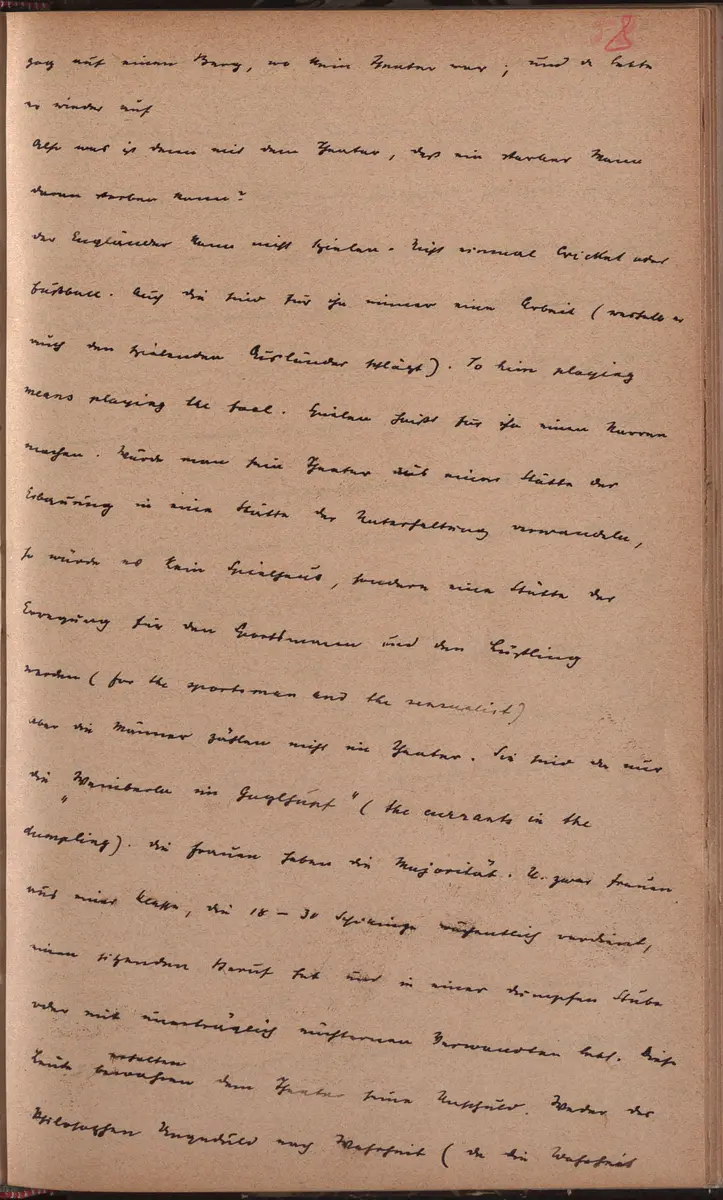 8
zog auf einen Berg, wo kein Theater war; und da lebte
er wieder auf
Also was ist denn mit dem Theater, daß ein starker Mann
daran sterben kann?
Der Engländer kann nicht spielen. Nicht einmal Cricket oder
Fußball. Auch die sind für ihn immer eine Arbeit (weshalb er
auch den spielenden Ausländer schlägt). To him playing
means playing the fool. Spielen heißt für ihn einen Narren
machen. Würde man sein Theater aus einer Stätte der
Erbauung in eine Stätte der Unterhaltung verwandeln,
so würde es kein Spielhaus, sondern eine Stätte der
Erregung für den Sportsmann und den Lüstling
werden (for the sportsman and the sensualist)
Aber die Männer zählen nicht im Theater. Sie sind da nur
die „Weinberln im Guglhupf" (the currants in the
dumpling). Die Frauen haben die Majorität. U. zwar Frauen
aus einer Klasse, die 18 – 30 Schillinge wöchentlich verdient,
einen sitzenden Beruf hat und in einer dumpfen Stube
oder mit unerträglich nüchternen Verwandten lebt. Diese
erhalten
Leute bewahren dem Theater seine Unschuld. Weder des
Philosophen Ungeduld nach Wahrheit (da die Wahrheit